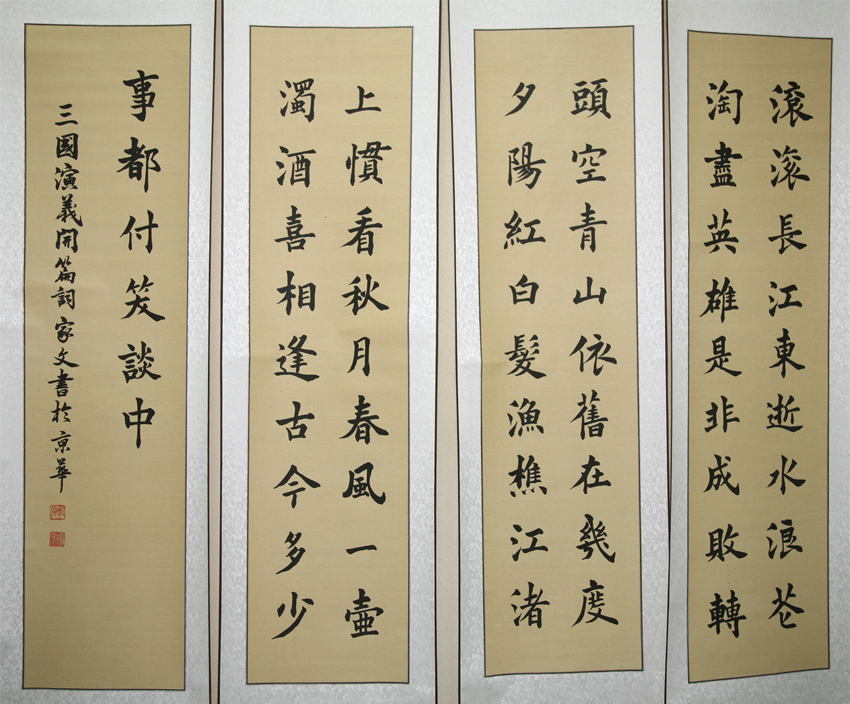 滾滾長江東逝水浪花
淘盡英雄是非成敗轉
頭空青山依舊在幾度
夕陽紅白髮漁樵江渚
上慣看秋月春風一壺
濁酒喜相逢古今多少
事都付笑談中
三國演義開篇詞家文書於京華